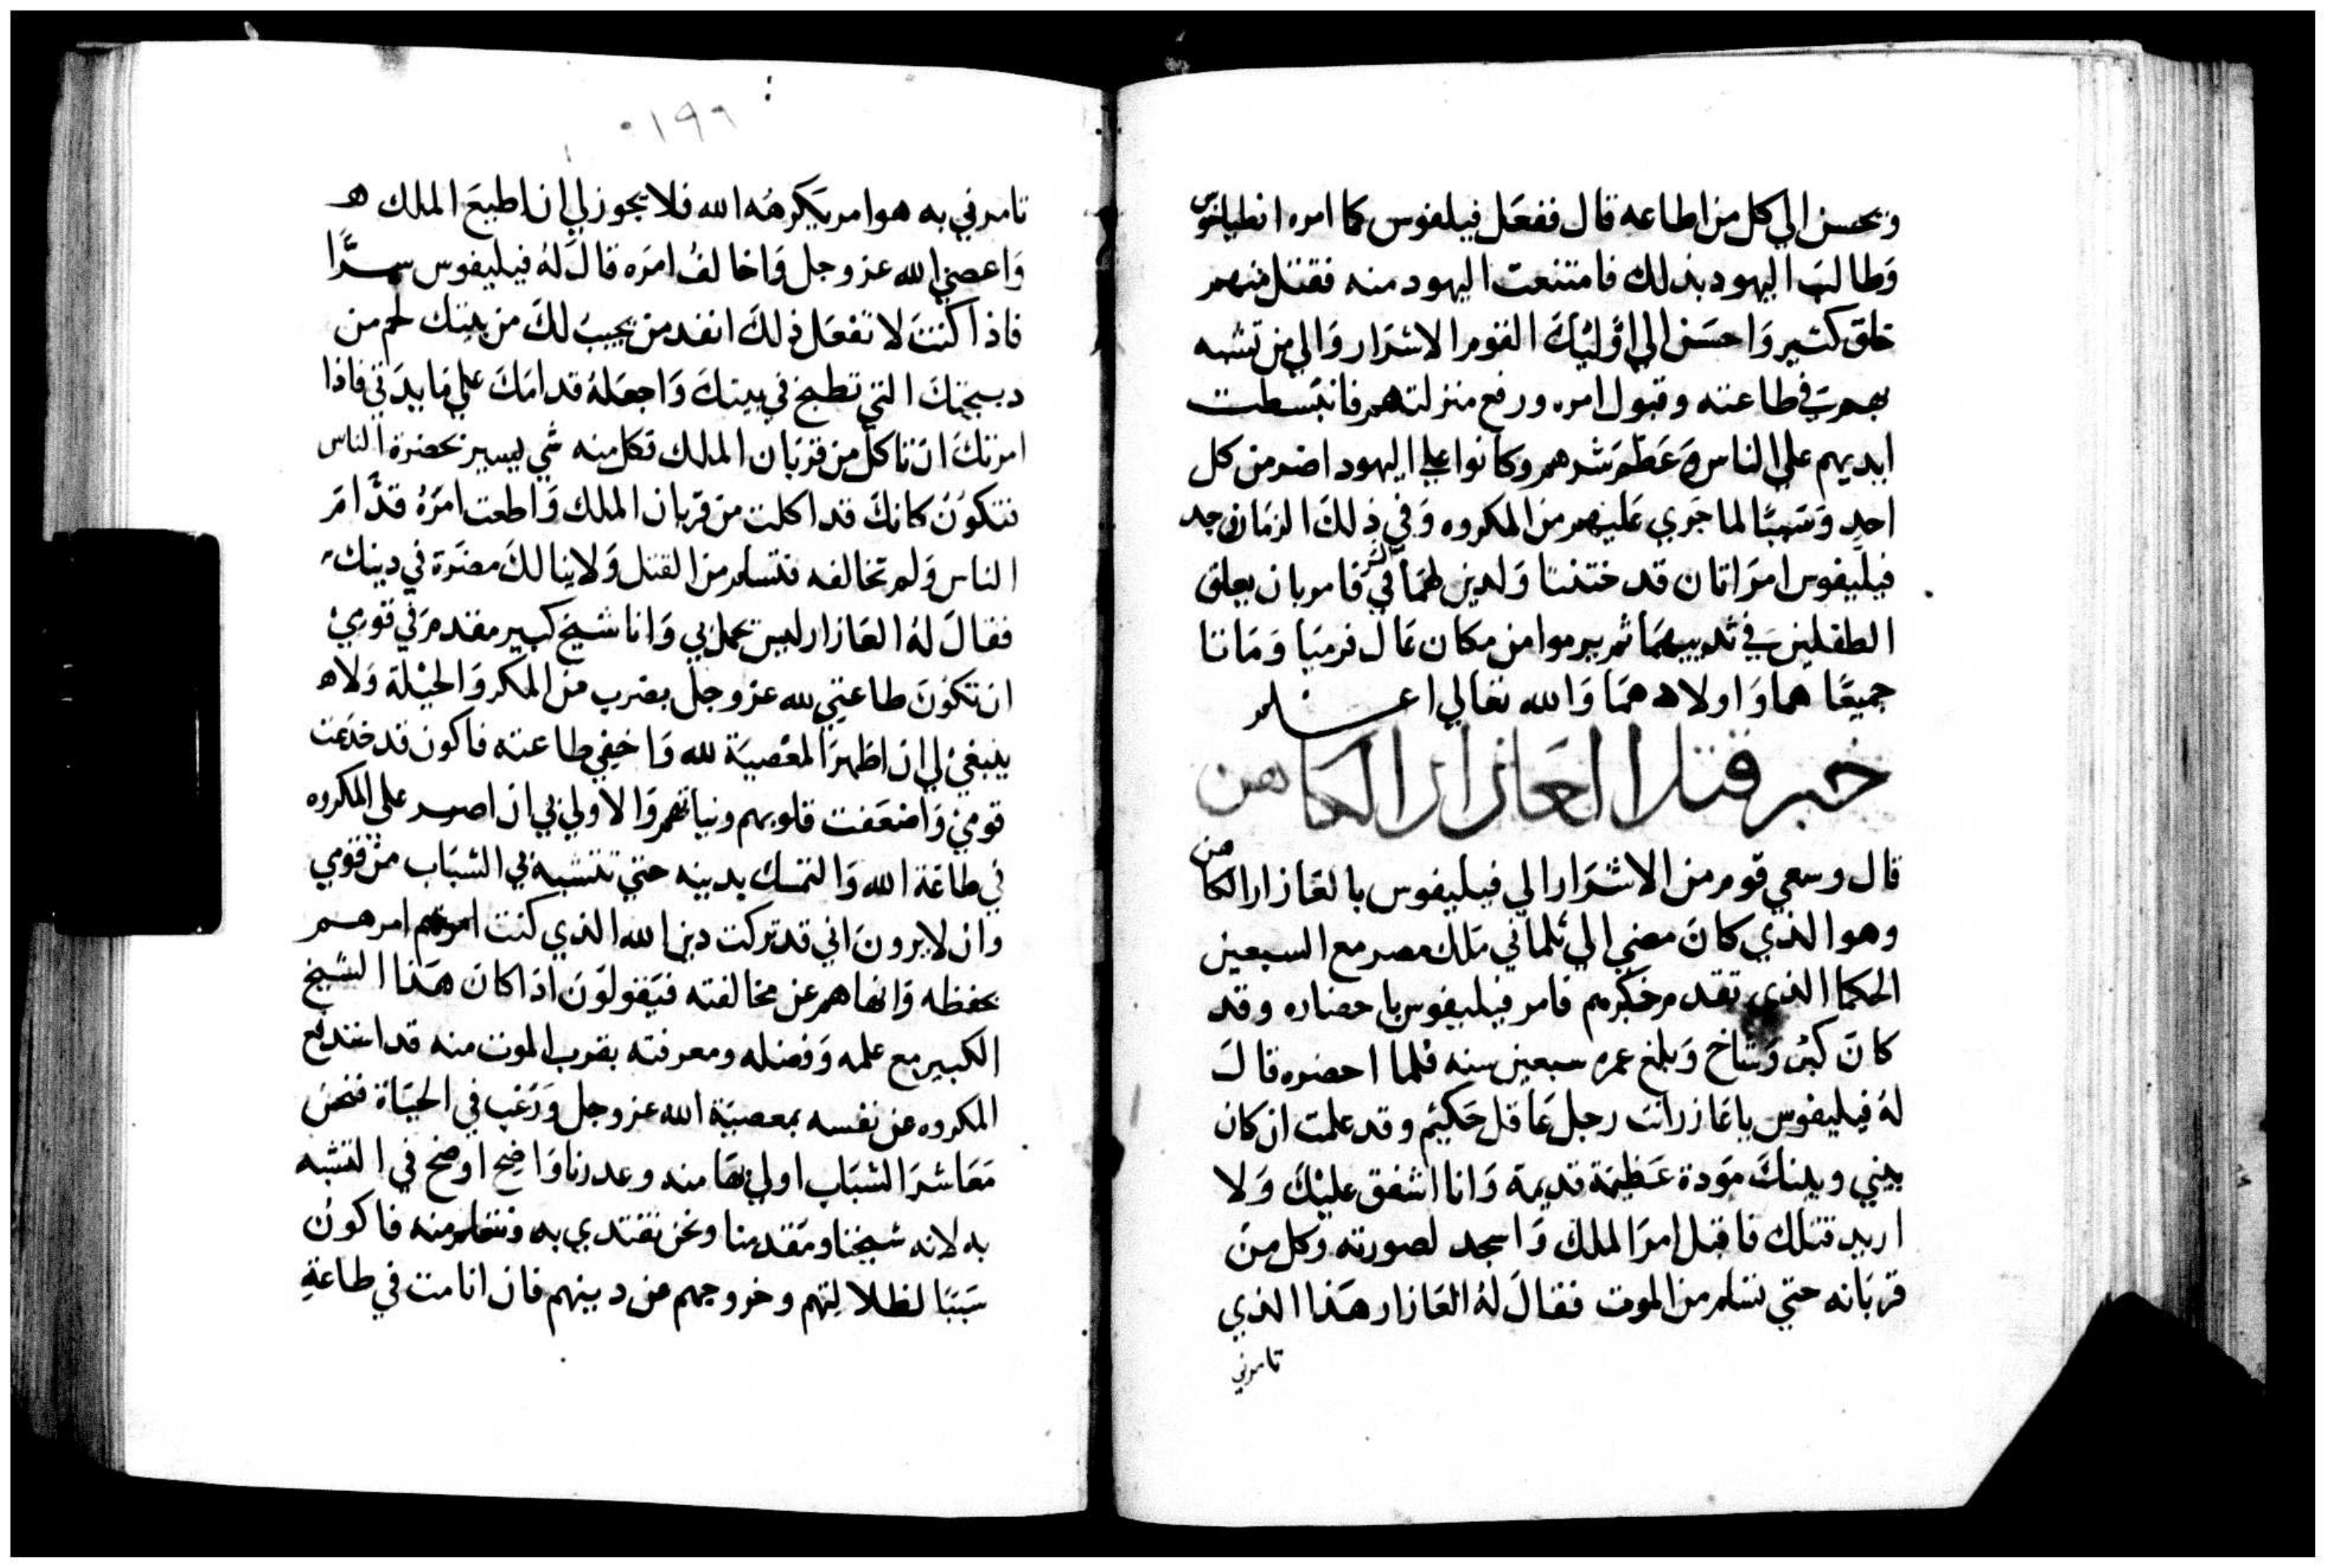 ويحسن الي كل من اطاعه قال ففعل فيلفوس كما امره انطياخوس
وطالب اليهود بذلك فامتنعت اليهود منه فقتل منهم
خلق كثير واحسن الي اوليك القوم الاشرار والي من تشبه
بهم في طاعته وقبول امره ورفع منزلتهم فانبسطت
ايديهم علي الناس وعظم شرهم وكانوا علي اليهود اضر من كل
احد وسببًا لما جري عليهم من المكروه وفي ذلك الزمان جد
فيليفوس امراتان قد ختنتا ولدين لهما في السر فامر بان يعلق
الطفلين في ثدييهما ثم يرموا من مكان عال فرميا وماتا
جميعًا هما واولادهما والله تعالي اعلم
خبر قتل العازار الكاهن
قال وسعي قوم من الاشرار الي فيليفوس بالعازار الكاهن
وهو الذي كان مضي الي تلماي ملك مصر مع السبعين
الحكما الذي تقدم خبرهم فامر فيليفوس باحضاره وقد
كان كبر وشاخ وبلغ عمره سبعين سنه فلما احضره قال
له فيليفوس ياعازر انت رجل عاقل حكيم وقد علمت ان كان
بيني وبينك مودة عظيمة قديمة وانا اشفق عليك ولا
اريد قتلك فاقبل امر الملك واسجد لصورته وكل من
قربانه حتي تسلم من الموت فقال له العازار هذا الذي
تامرني
١٩٦
تامرني به هو امر يكرهه الله فلا يجوز لي ان اطيع الملك ه
واعصي الله عز وجل واخالف امره قال له فيليفوس سرًّا
فاذا كنت لا تفعل ذلك انفد من يجيب لك من بيتك لحم من
دبيحتك التي تطبخ في بيتك واجعله قدامك علي مايدتي فاذا
امرتك ان تاكل من قربان الملك تكل منه شي يسير بحضرة الناس
فتكون كانك قد اكلت من قربان الملك واطعت امره قدّام
الناس ولم تخالفه فتسلم من القتل ولا ينالك مضرة في دينك
فقال له العازار ليس يجمل بي وانا شيخ كبير مقدم في قومي
ان تكون طاعتي لله عز وجل بضرب من المكر والحيلة ولا ه
ينبغي لي ان اظهر المعصية لله واخفي طاعته فاكون قد خدعت
قومي واضعفت قلوبهم ونياتهم والاولي بي ان اصبر علي المكروه
في طاعة الله والتمسك بدينه حتي تتشبه بي الشباب من قومي
وان لا يرون اني قد تركت دين الله الذي كنت امرهم
بحفظه وانهاهم عن مخالفته فيقولون اذا كان هذا الشيخ
الكبير مع علمه وفضله ومعرفته بقرب الموت منه قد استدفع
المكروه عن نفسه بمعصية الله عز وجل ورغب في الحياة فنحن
معاشر الشباب اولي بها منه وعدرنا واضح اوضح في التشبه
به لانه شيخنا ومقدمنا ونحن نقتدي به ونتعلم منه فاكون
سببًا لظلالتهم وخروجهم عن دينهم فان انا مت في طاعة